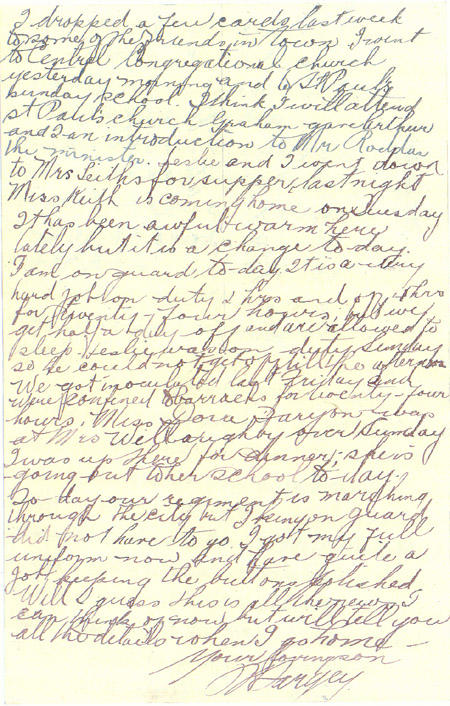 I dropped a few cards last week
to some of the friends in town I went
to Central Congregational church
yesterday morning and to St Pauls
Sunday school. I think I will attend
St Pauls church Graham gave Arthur
and I an introduction to Mr
the minister. Leslie and I went down
to Mrs Keiths for supper last night
Miss Keith is coming home on Tuesday
It has been awful warm here
lately but it is a change to-day.
I am on guard to-day It is a very
hard job on duty 2 hrs and off 4 hrs
for twenty-four hours, but we
get half a day off and are allowed to
sleep. Leslie was on duty Sunday
so he could not get off till the afternoon
We got inoculated last Friday and
were confined to barracks for twenty-four
hours, Miss Dora was
at Mrs Willoughby over Sunday
I was up there for dinner, she is
going out to her school to-day.
To-day our regiment is marching
through the city but I being on guard
did not have to go. I got my full
uniform now and have quite a
job keeping the buttons polished
Will I guess this is all the news I
can think of now but will tell you
all the details when I go home-
Your loving son
Harvey.